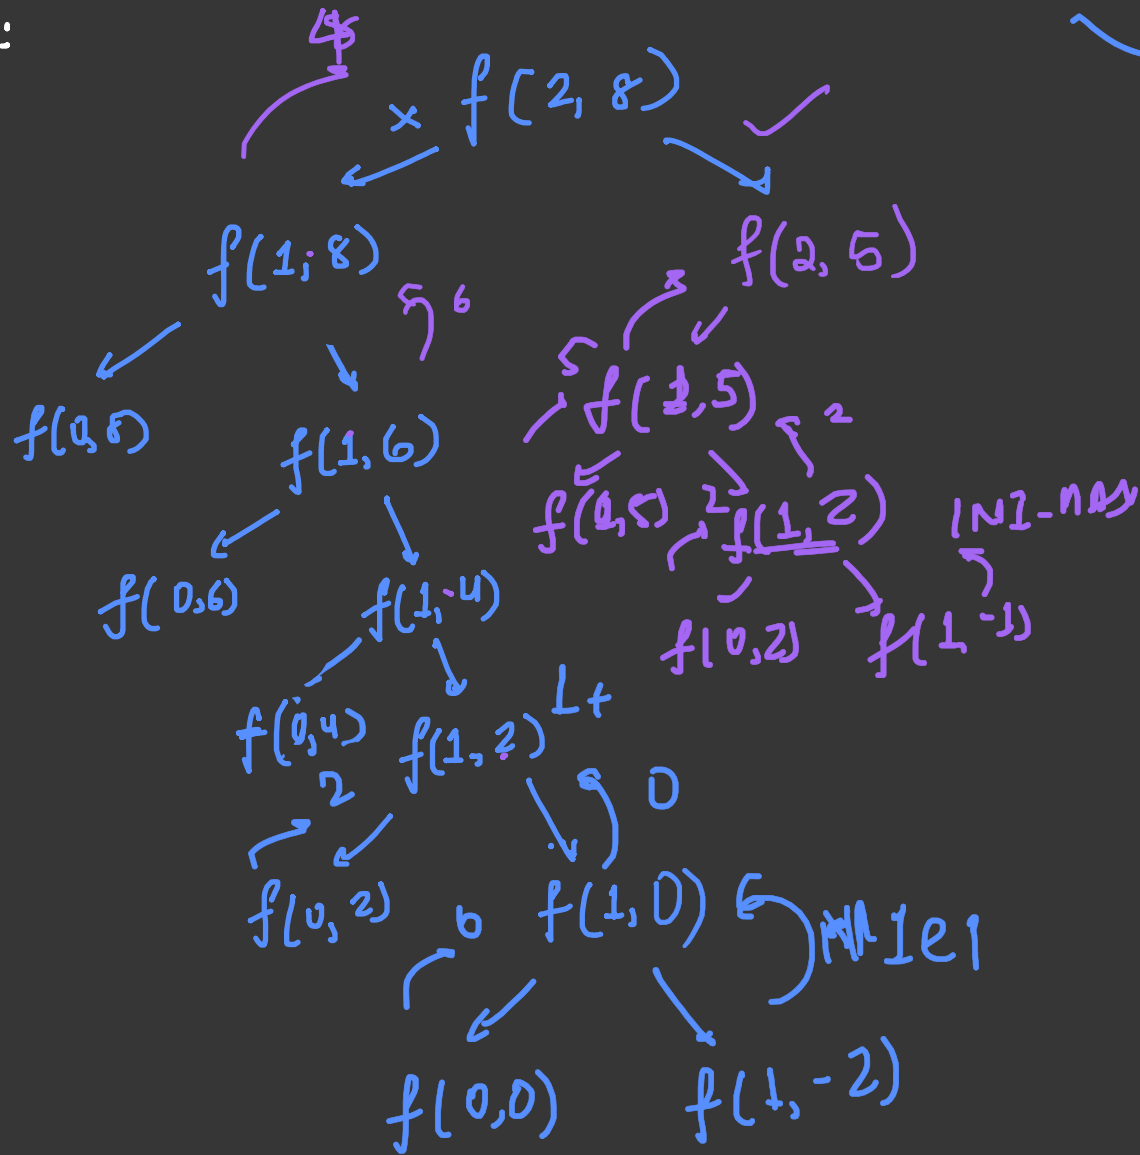 f(2,8)
x
f(1,8)
f(2,5)
6
5
f(0,8)
f(1,6)
f(1,5)
2
f(0,5)
2
f(1,2)
f(0,6)
f(1,4)
f(0,2)
f(1,-1)
f(0,4)
f(1,2)
1+
2
0
f(0,2)
f(1,0)
0
1e1
f(0,0)
f(1,-2)